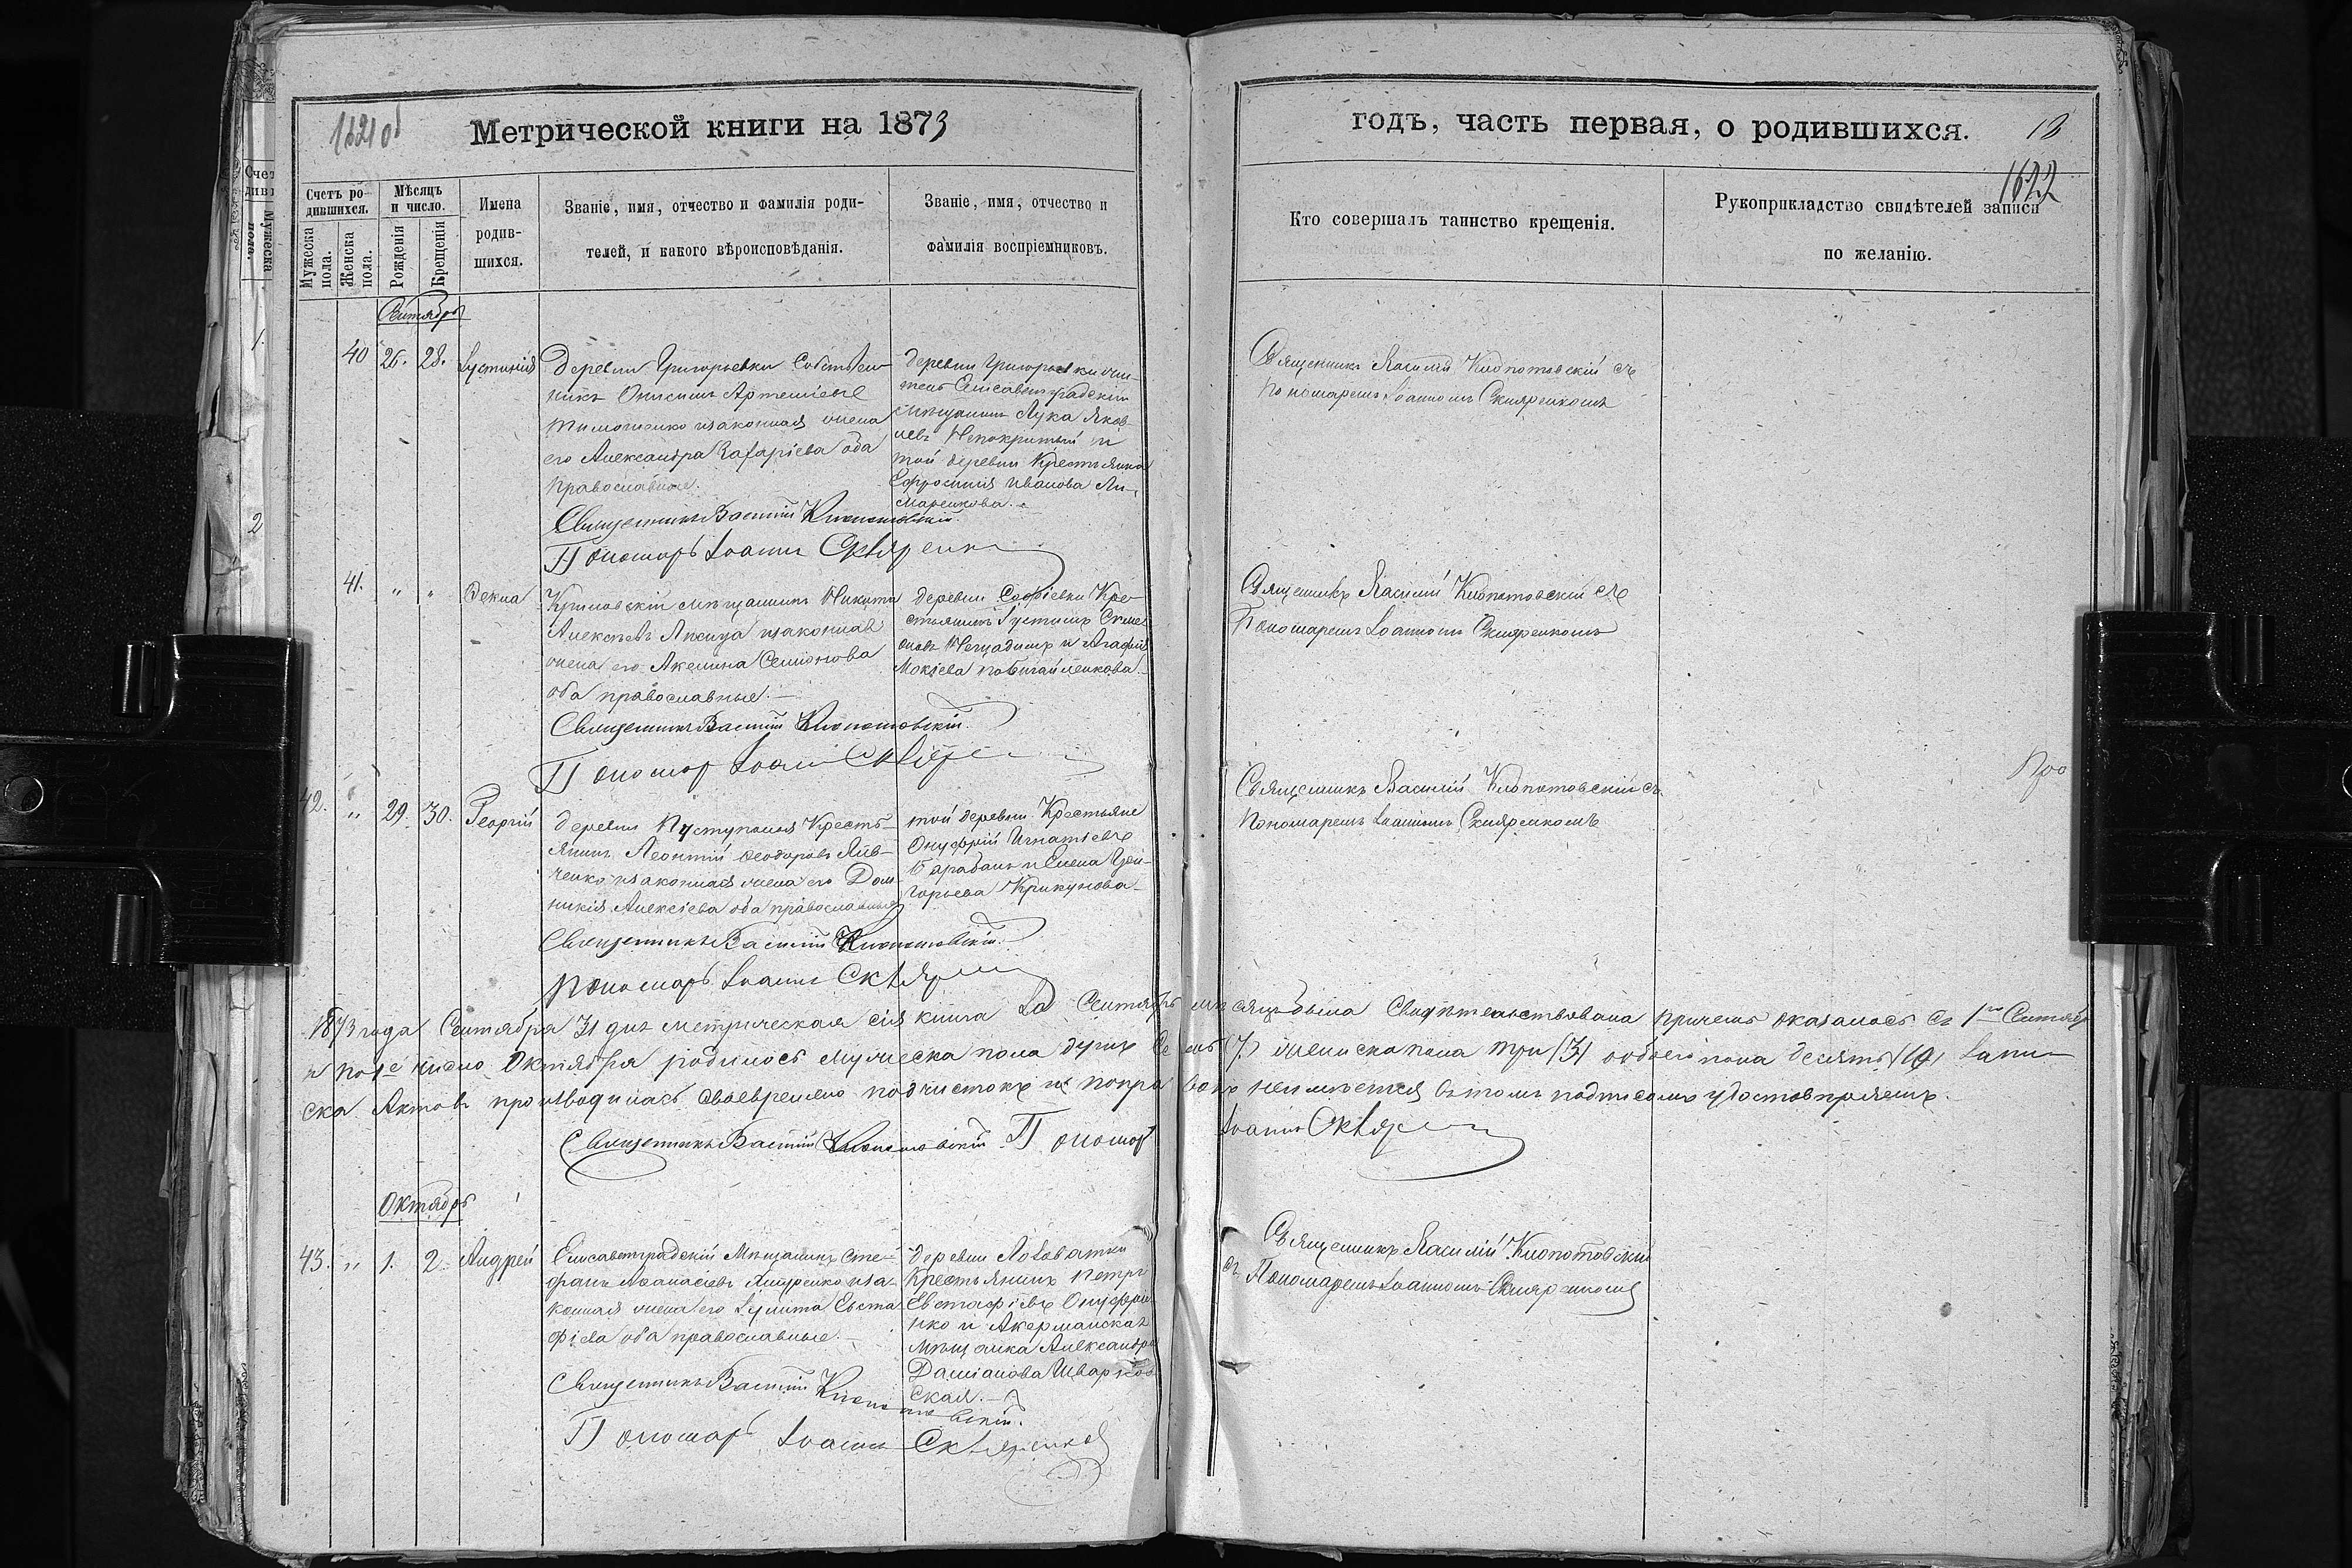 Метрической книги на 1873
годъ, часть первая, о родившихся.
18
1622
Счетъ родившихся.
Мужеска пола.
Женска пола.
Мѣсяцъ и число.
Рожденія
Крещенія
Имена
родив-
шихся.
Званіе, имя, отчество и фамилія роди-
телей, и какого вѣроисповѣданія.
Званіе, имя, отчество и
фамилія воспріемниковъ.
Кто совершалъ таинство крещенія.
Рукоприкладство свидѣтелей записи
по желанію.
Сентябрь
40 26. 28. Іустинія
Деревни Григорьевки Собствен-
никъ Онисимъ Артеміевъ
Тимошенко и законная жена
его Александра Захаріева оба
православные.
Священникъ Василій Клопотовскій.
Пономарь Іоаннъ Скляренко
Деревни Григорьевки
Елисаветградскій
мѣщанинъ Лука Яков-
левъ Непокритый и
той деревни Крестьянка
Евфросинія Иванова
Священникъ Василій Клопотовскій съ
Пономаремъ Іоанномъ Скляренкомъ
41. " " Текла
Крыловскій мѣщанинъ Никита
Алексѣевъ Лисица и законная
жена его Акелина Семіонова
оба православные.
Священникъ Василій Клопотовскій.
Деревни Софіевки Кре-
стьянинъ Іустинъ Симе-
оновъ и Агафія
Мокіева
Священникъ Василій Клопотовскій съ
Пономаремъ Іоанномъ Скляренкомъ
42. " 29. 30. Георгій
деревни Кресть-
янинъ Леонтій Феодоровъ
ченко и законная жена его Дом-
никія Алексіева оба православные
Священникъ Василій Клопотовскій.
Пономарь Іоаннъ Скляренко
той деревни Крестьяне
Онуфрій Игнатіевъ
Барабанъ и Елена Гри-
горьева Крикунова
Священникъ Василій Клопотовскій съ
Пономаремъ Іоанномъ Скляренкомъ
1873 года Сентября 31 дня метрическая сія книга за Сентябрь мѣсяцъ была Свидѣтельствована причемъ оказалось съ 1го Сентября
и по 1е число Октября родилось мужеска пола душъ Семь (7) женска пола три (3) обоего пола десять (10) Запи-
ска Актовъ производилась своевременно подчистокъ и поправокъ неимѣется въ томъ подписомъ удостовѣряемъ.
Священникъ Василій Клопотовскій Пономарь Іоаннъ Скляренко
Октябрь
43. " 1. 2. Андрей
Елисаветградскій Мѣщанинъ Сте-
фанъ Афанасіевъ и за-
конная жена его Іулита Евста-
фіева оба православные.
Священникъ Василій Клопотовскій.
Пономарь Іоаннъ Скляренко
деревни Лозоватки
Крестьянинъ Петръ
Евстафіевъ Онуфріен-
ко и Акерманская
Мѣщанка Александра
Даміанова
ская.
Священникъ Василій Клопотовскій
съ Пономаремъ Іоанномъ Скляренкомъ